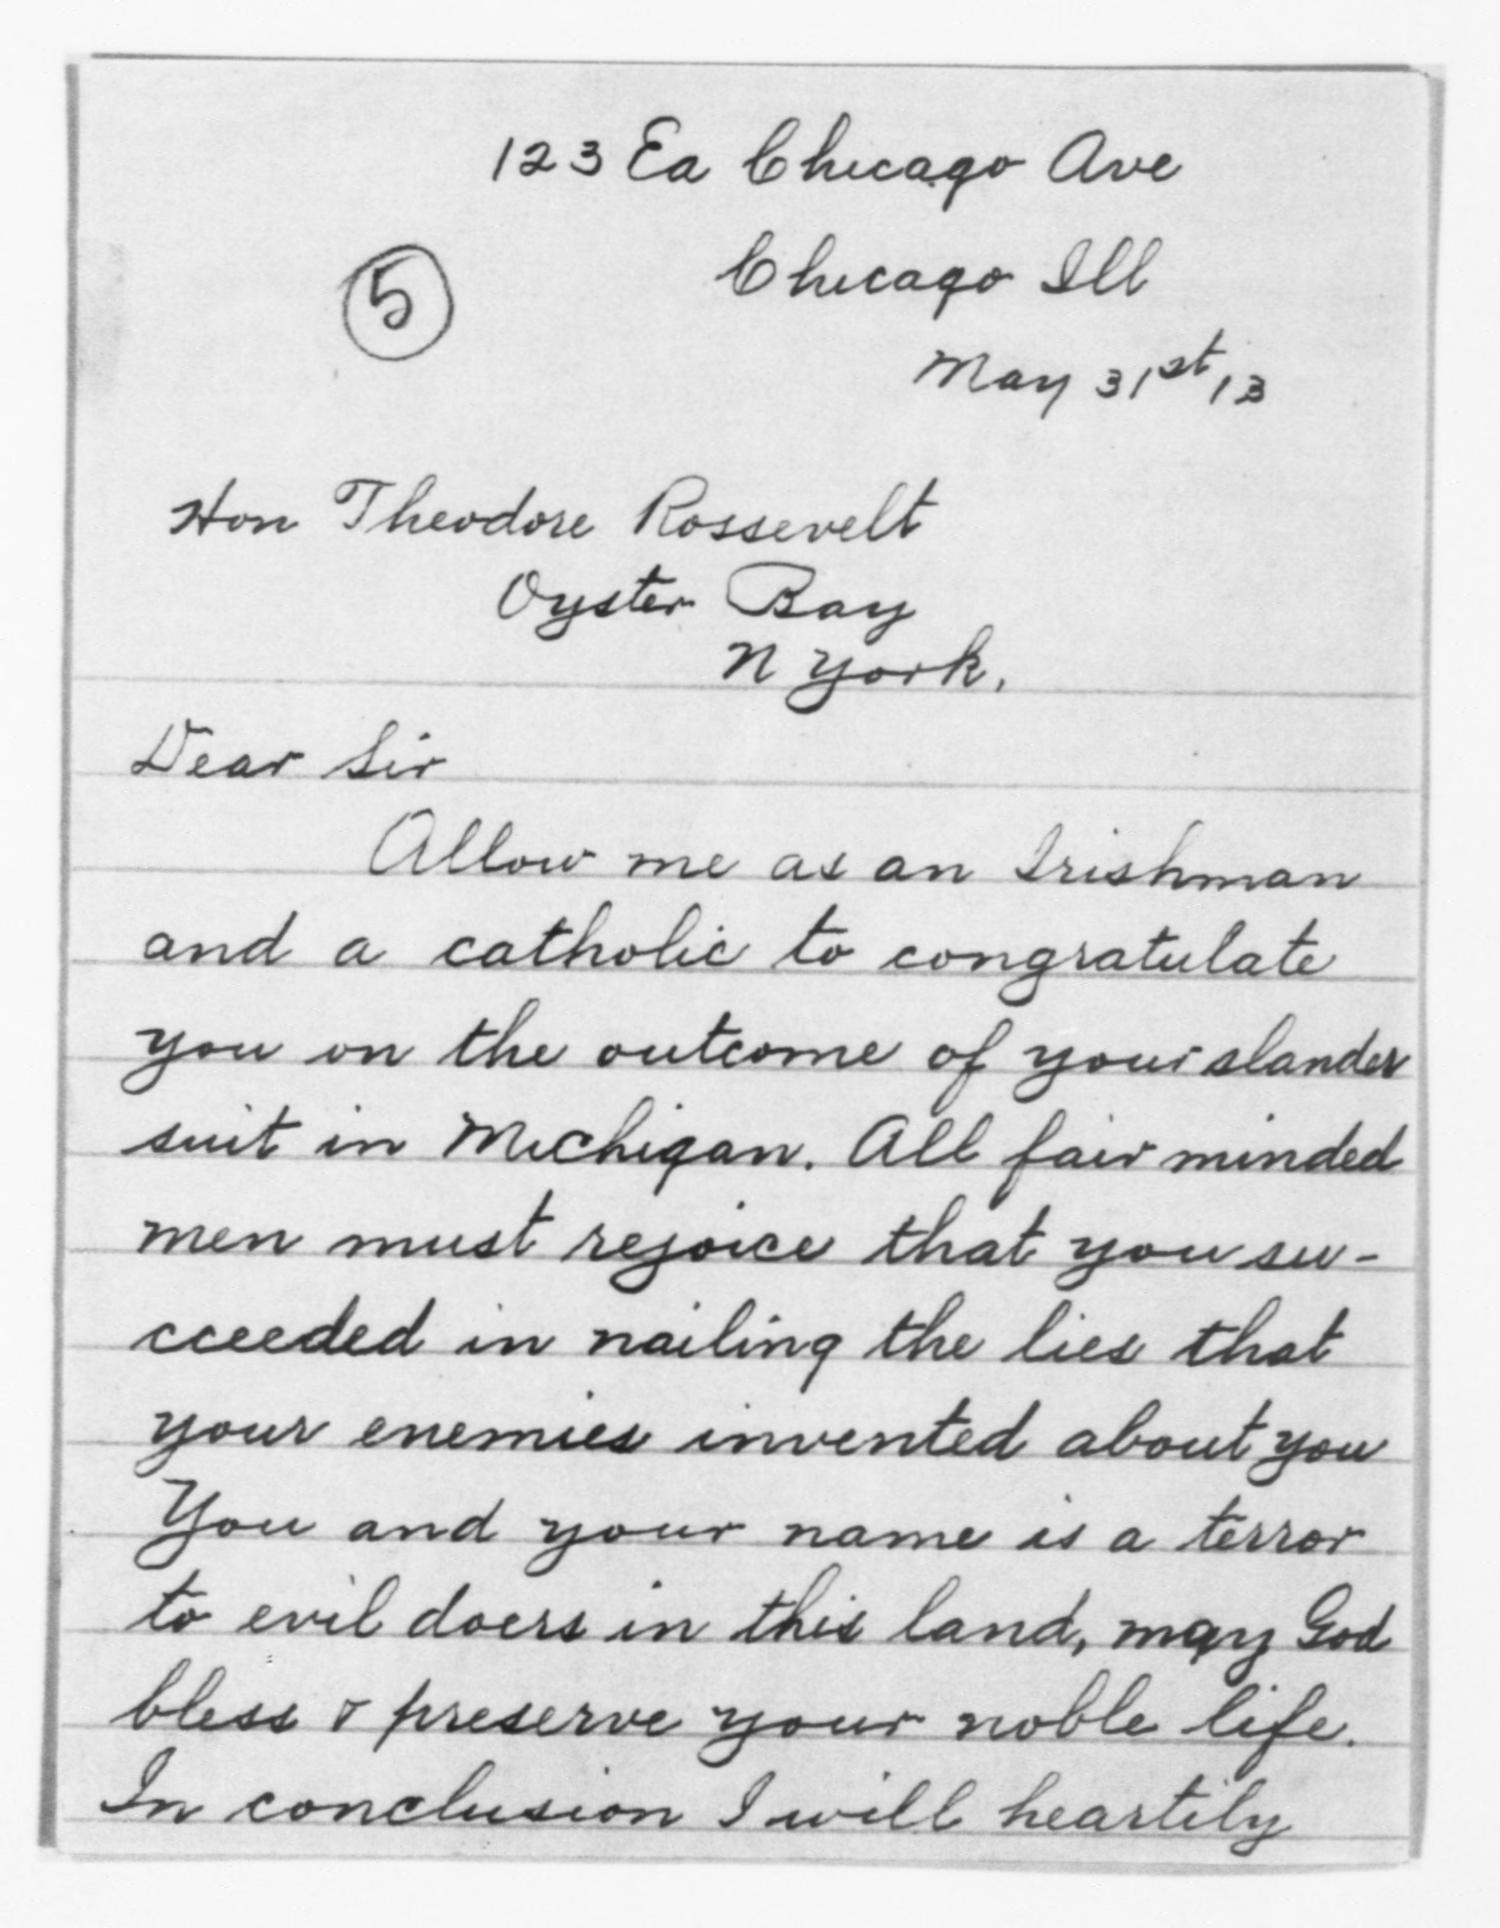 123 Ea Chicago Ave
Chicago Ill
5
May 31st 13
Hon Theodore Rossevelt
Oyster Bay
N York.
Dear Sir
Allow me as an Irishman
and a catholic to congratulate
you on the outcome of your slander
suit in Michigan. All fair minded
men must rejoice that you su-
cceeded in nailing the lies that
your enemies invented about you
You and your name is a terror
to evil doers in this land, may God
bless & preserve your noble life.
In conclusion I will heartily